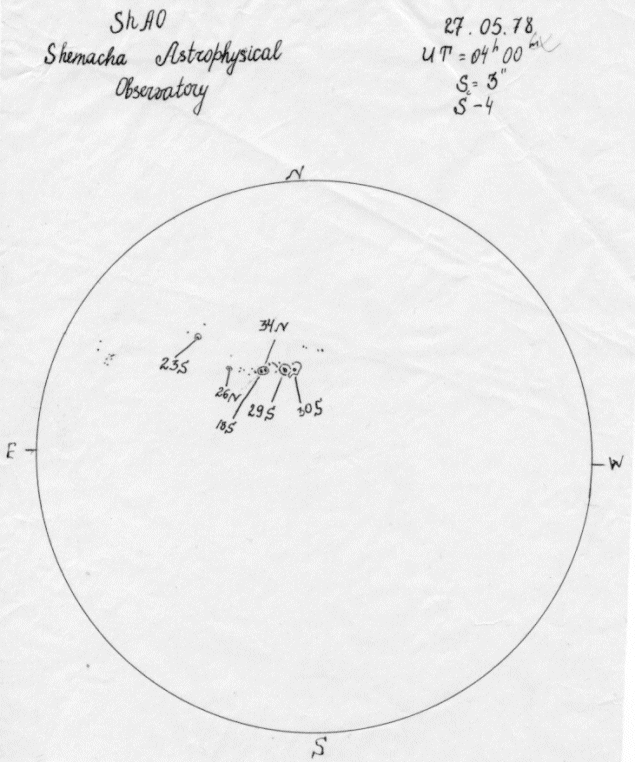 ShAO
Shemacha Astrophysical
Observatory
27.05.78
UT = 04ʰ 00
S = 3"
S-4
N
34N
23S
26N
18S
29S
30S
E
W
S